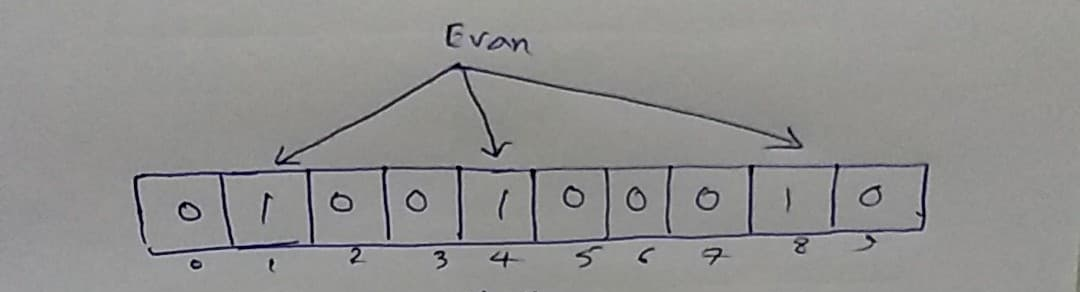 Evan
0 1 0 0 1 0 0 0 1 0
0 1 2 3 4 5 6 7 8 9